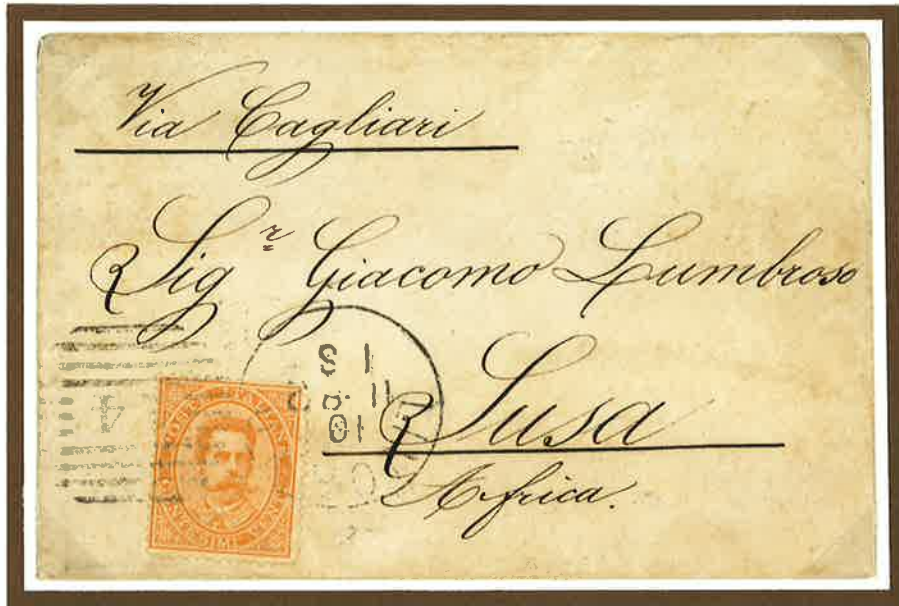 Via Cagliari
Sigr Giacomo Lumbroso
Susa
Africa.